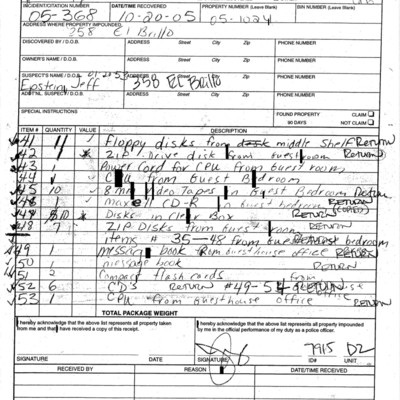 INCIDENT/CITATION NUMBER DATE/TIME RECOVERED PROPERTY NUMBER (Leave Blank) BIN NUMBER (Leave Blank)
05-368 10-20-05 05-1024
ADDRESS WHERE PROPERTY IMPOUNDED
258 El Brillo
DISCOVERED BY / D.O.B. ADDRESS Street City Zip PHONE NUMBER
OWNER'S NAME / D.O.B. ADDRESS Street City Zip PHONE NUMBER
SUSPECT'S NAME / D.O.B. ADDRESS Street City Zip PHONE NUMBER
Epstein, Jeff 358 El Brillo
ADDT'NL. SUSPECT / D.O.B. ADDRESS Street City Zip PHONE NUMBER
SPECIAL INSTRUCTIONS FOUND PROPERTY CLAIM
90 DAYS NOT CLAIM
ITEM # QUANTITY VALUE DESCRIPTION
41 11 Floppy disks from desk middle shelf RETURN
42 ZIP Drive disk from Guest room RETURN
1 Power Cord for CPU from Guest room
44 from Guest Bedroom
45 10 8mm Video Tapes in Guest Bedroom Return
1 maxell CD-R in Guest bedroom RETURN
10 Disks in Clear Box RETURN
48 7 ZIP Disks from Guest room RETURN
items # 35-48 from guest bedroom
49 1 book from Guesthouse office RETURN
50 1 message book RETURN
51 2 Compact flash cards from
52 6 CD'S RETURN #49-54 office RETURN
53 1 CPU from Guesthouse office RETURN
TOTAL PACKAGE WEIGHT
I hereby acknowledge that the above list represents all property taken
from me and that I have received a copy of this receipt.
I hereby acknowledge that the above list represents all property impounded
by me in the official performance of my duty as a police officer.
7915 D2
SIGNATURE DATE SIGNATURE ID# UNIT
RECEIVED BY DATE/TIME REASON RECEIVED BY DATE/TIME